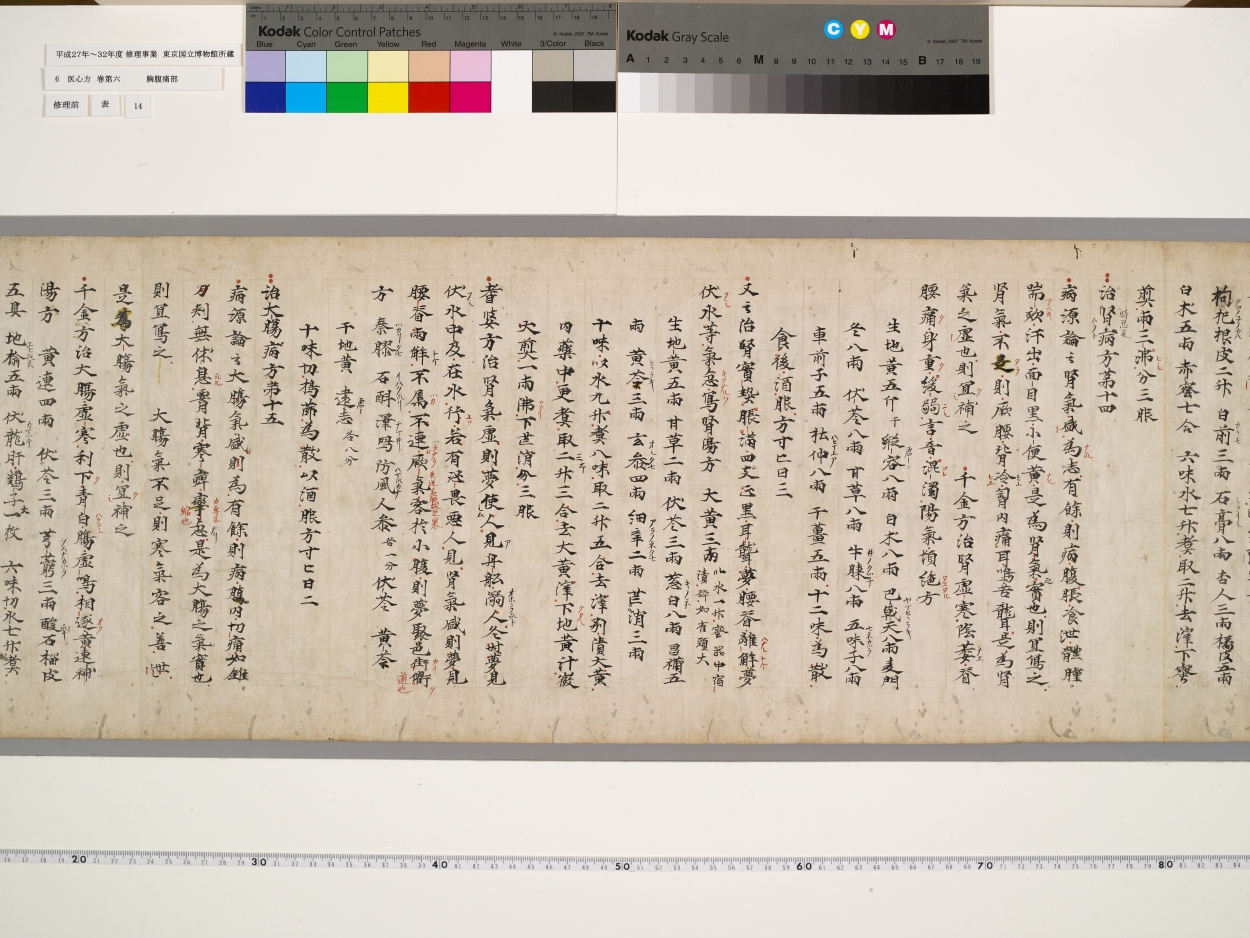 平成27年～32年度 修理事業 東京国立博物館所蔵
6 医心方 巻第六 胸腹痛部
修理前 表 14
Kodak Color Control Patches
© Kodak, 2007 TM: Kodak
Blue Cyan Green Yellow Red Magenta White 3/Color Black
Kodak Gray Scale
C Y M
© Kodak, 2007 TM: Kodak
A 1 2 3 4 5 6 M 8 9 10 11 12 13 14 15 B 17 18 19
枸杞根皮二升 白前三兩 石膏八兩 杏人三兩 橘皮五兩
白朮五兩 赤蜜七合 六味水七升煮取二升去滓下蜜
煎兩三沸分三服
治腎病方第十四
病源論云腎氣盛為志有餘則病腹脹飧泄體腫
喘欬汗出面目黒小便黄是為腎氣實也則宜寫之
腎氣不足則厥腰背冷胷内痛耳鳴苦聾是為腎
氣之虚也則宜補之 千金方治腎虚寒陰萎脊
腰痛身重緩弱言音混濁陽氣頓絶方
生地黄五斤 蓯蓉八兩 白朮八兩 巴戟天八兩 麦門
冬八兩 伏苓八兩 甘草八兩 牛膝八兩 五味子八兩
車前子五兩 杜仲八兩 干薑五兩 十二味為散
食後酒服方寸匕日三
又云治腎實熱脹滿四支正黒耳聾夢腰脊離解夢
伏水等氣急寫腎湯方 大黄三兩 以水一升密器中宿漬 芒如雀頭大
生地黄五兩 甘草二兩 伏苓三兩 葱白八兩 昌蒲五
兩 黄芩三兩 玄參四兩 細辛二兩 芒消三兩
十味以水九升煮八味取二升五合去滓別漬大黄
内藥中更煮取二升三合去大黄滓下地黄汁微
火煎一兩沸下芒消分三服
耆婆方治腎氣虚則夢使人見舟船溺人冬時夢見
伏水中及在水行若有逐畏惡人見腎氣盛則夢見
腰脊兩解不属不連厥氣客於小腹則夢聚邑街衢
方 秦膠 石斛 澤冩 防風 人參 各一分 伏苓 黄芩
干地黄 遠志 各八分
十味切擣篩為散以酒服方寸匕日二
治大腸病方第十五
病源論云大腸氣盛則為有餘則病腸内切痛如錐
刀刾無休息腰背寒痺攣急是為大腸之氣實也
則宜寫之 大腸氣不足則寒氣客之善泄
是為大腸氣之虚也則宜補之
千金方治大腸虚寒利下青白腸虚鳴相逐黄連補
湯方 黄連四兩 伏苓三兩 芎藭三兩 酸石榴皮
五具 地楡五兩 伏龍肝鷄子大一枚 六味切水七升煮
20 30 40 50 60 70 80